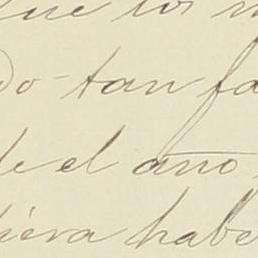 que los
do tan fa
de el año
iera habe